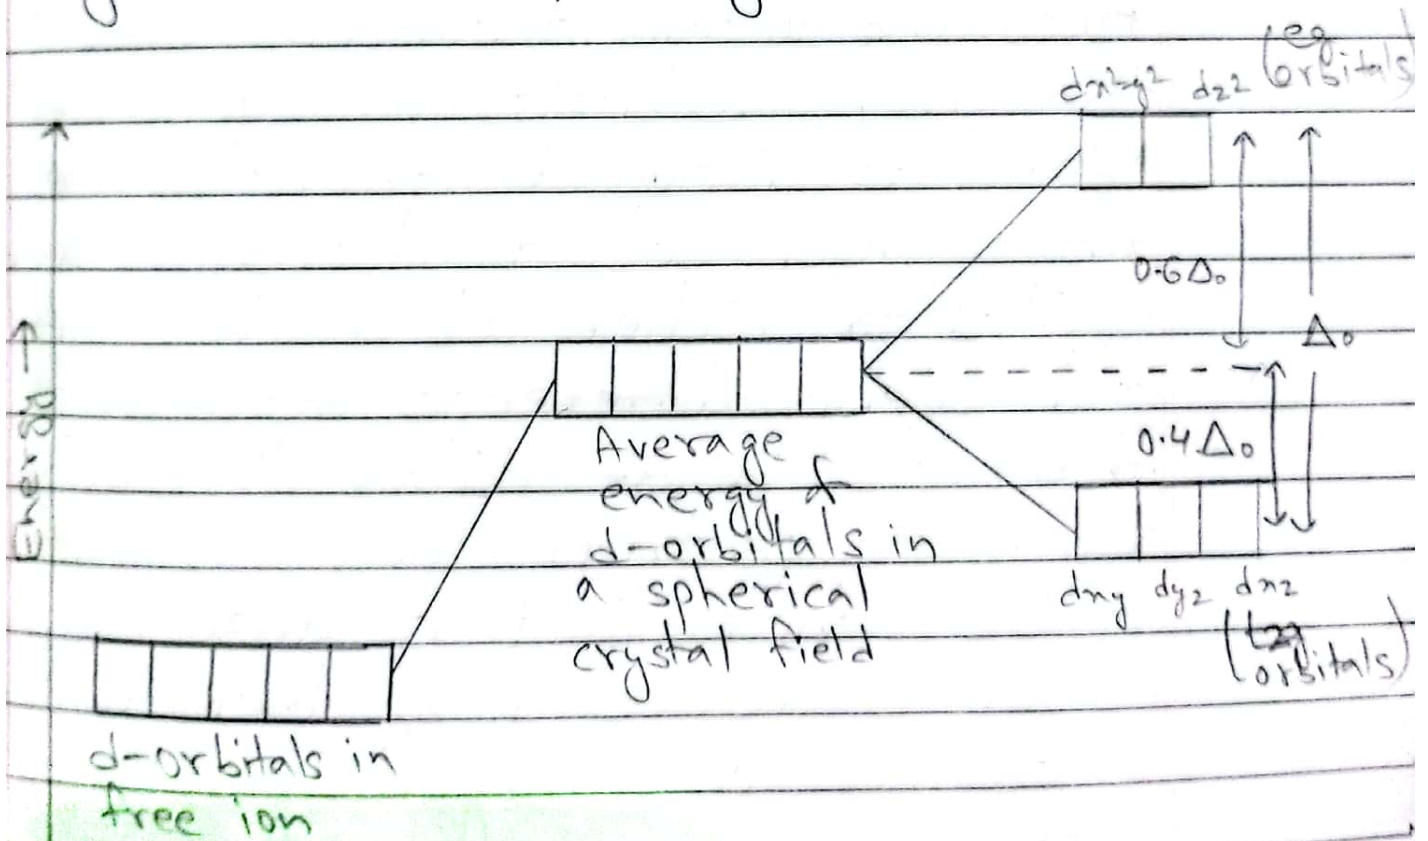 (eg
orbitals)
dx²-y² dz²
0.6Δ₀
Δ₀
Energy →
0.4Δ₀
Average
energy of
d-orbitals in
a spherical
crystal field
dxy dyz dxz
(t2g
orbitals)
d-orbitals in
free ion